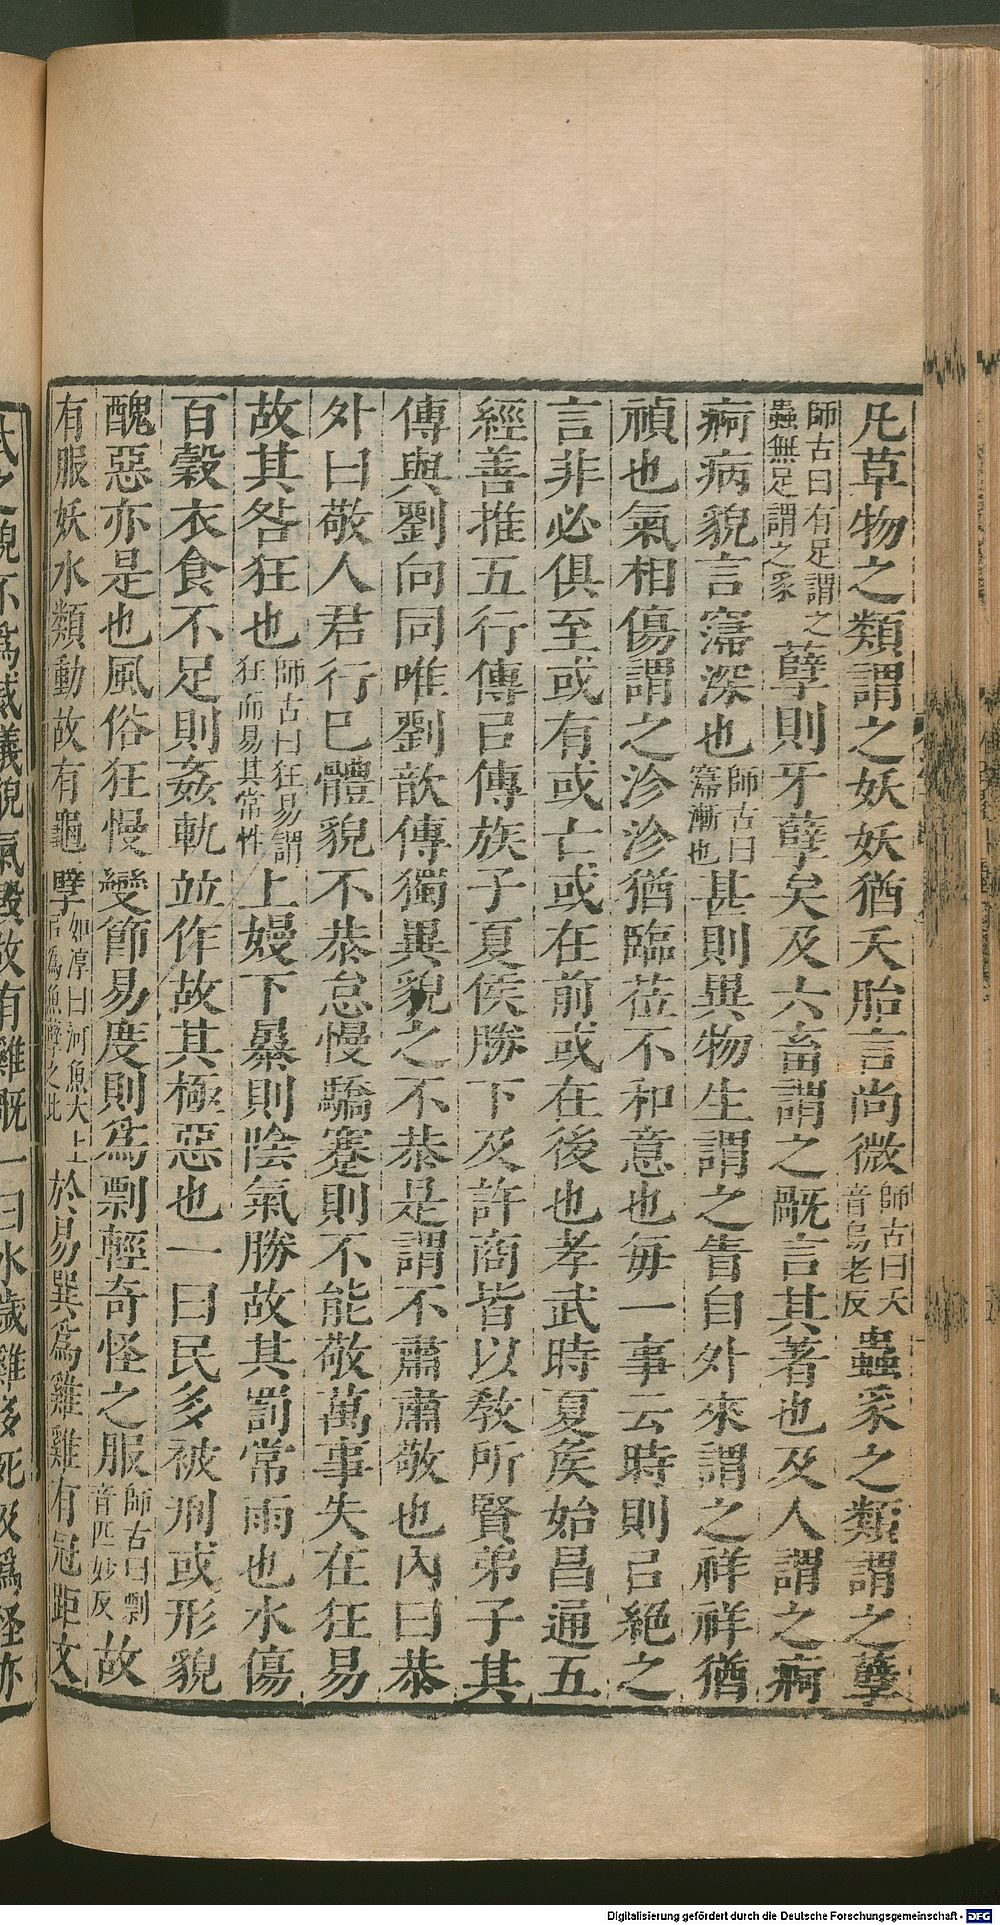 凡草物之類謂之妖妖猶夭胎言尚微師古曰夭音烏老反蟲豸之類謂之孽
師古曰有足謂之蟲無足謂之豸孽則牙孽矣及六畜謂之旤言其著也及人謂之痾
痾病貌言寖深也師古曰寖漸也甚則異物生謂之眚自外來謂之祥祥猶
禎也氣相傷謂之沴沴猶臨莅不和意也每一事云時則㠯絕之
言非必俱至或有或亡或在前或在後也孝武時夏侯始昌通五
經善推五行傳㠯傳族子夏侯勝下及許商皆以敎所賢弟子其
傳與劉向同唯劉歆傳獨異貌之不恭是謂不肅肅敬也內曰恭
外曰敬人君行己體貌不恭怠慢驕蹇則不能敬萬事失在狂易
故其咎狂也師古曰狂易謂狂而易其常性上嫚下暴則陰氣勝故其罰常雨也水傷
百穀衣食不足則姦軌並作故其極惡也一曰民多被刑或形貌
醜惡亦是也風俗狂慢變節易度則爲剽輕奇怪之服師古曰剽音匹妙反故
有服妖水類動故有龜孽如淳曰河魚大上㠯爲魚孽之比於易巽爲雞雞有冠距文
氏之貌不爲威儀貌氣毀故有雞旤一曰水歲雞多死及爲怪亦
Digitalisierung gefördert durch die Deutsche Forschungsgemeinschaft - DFG